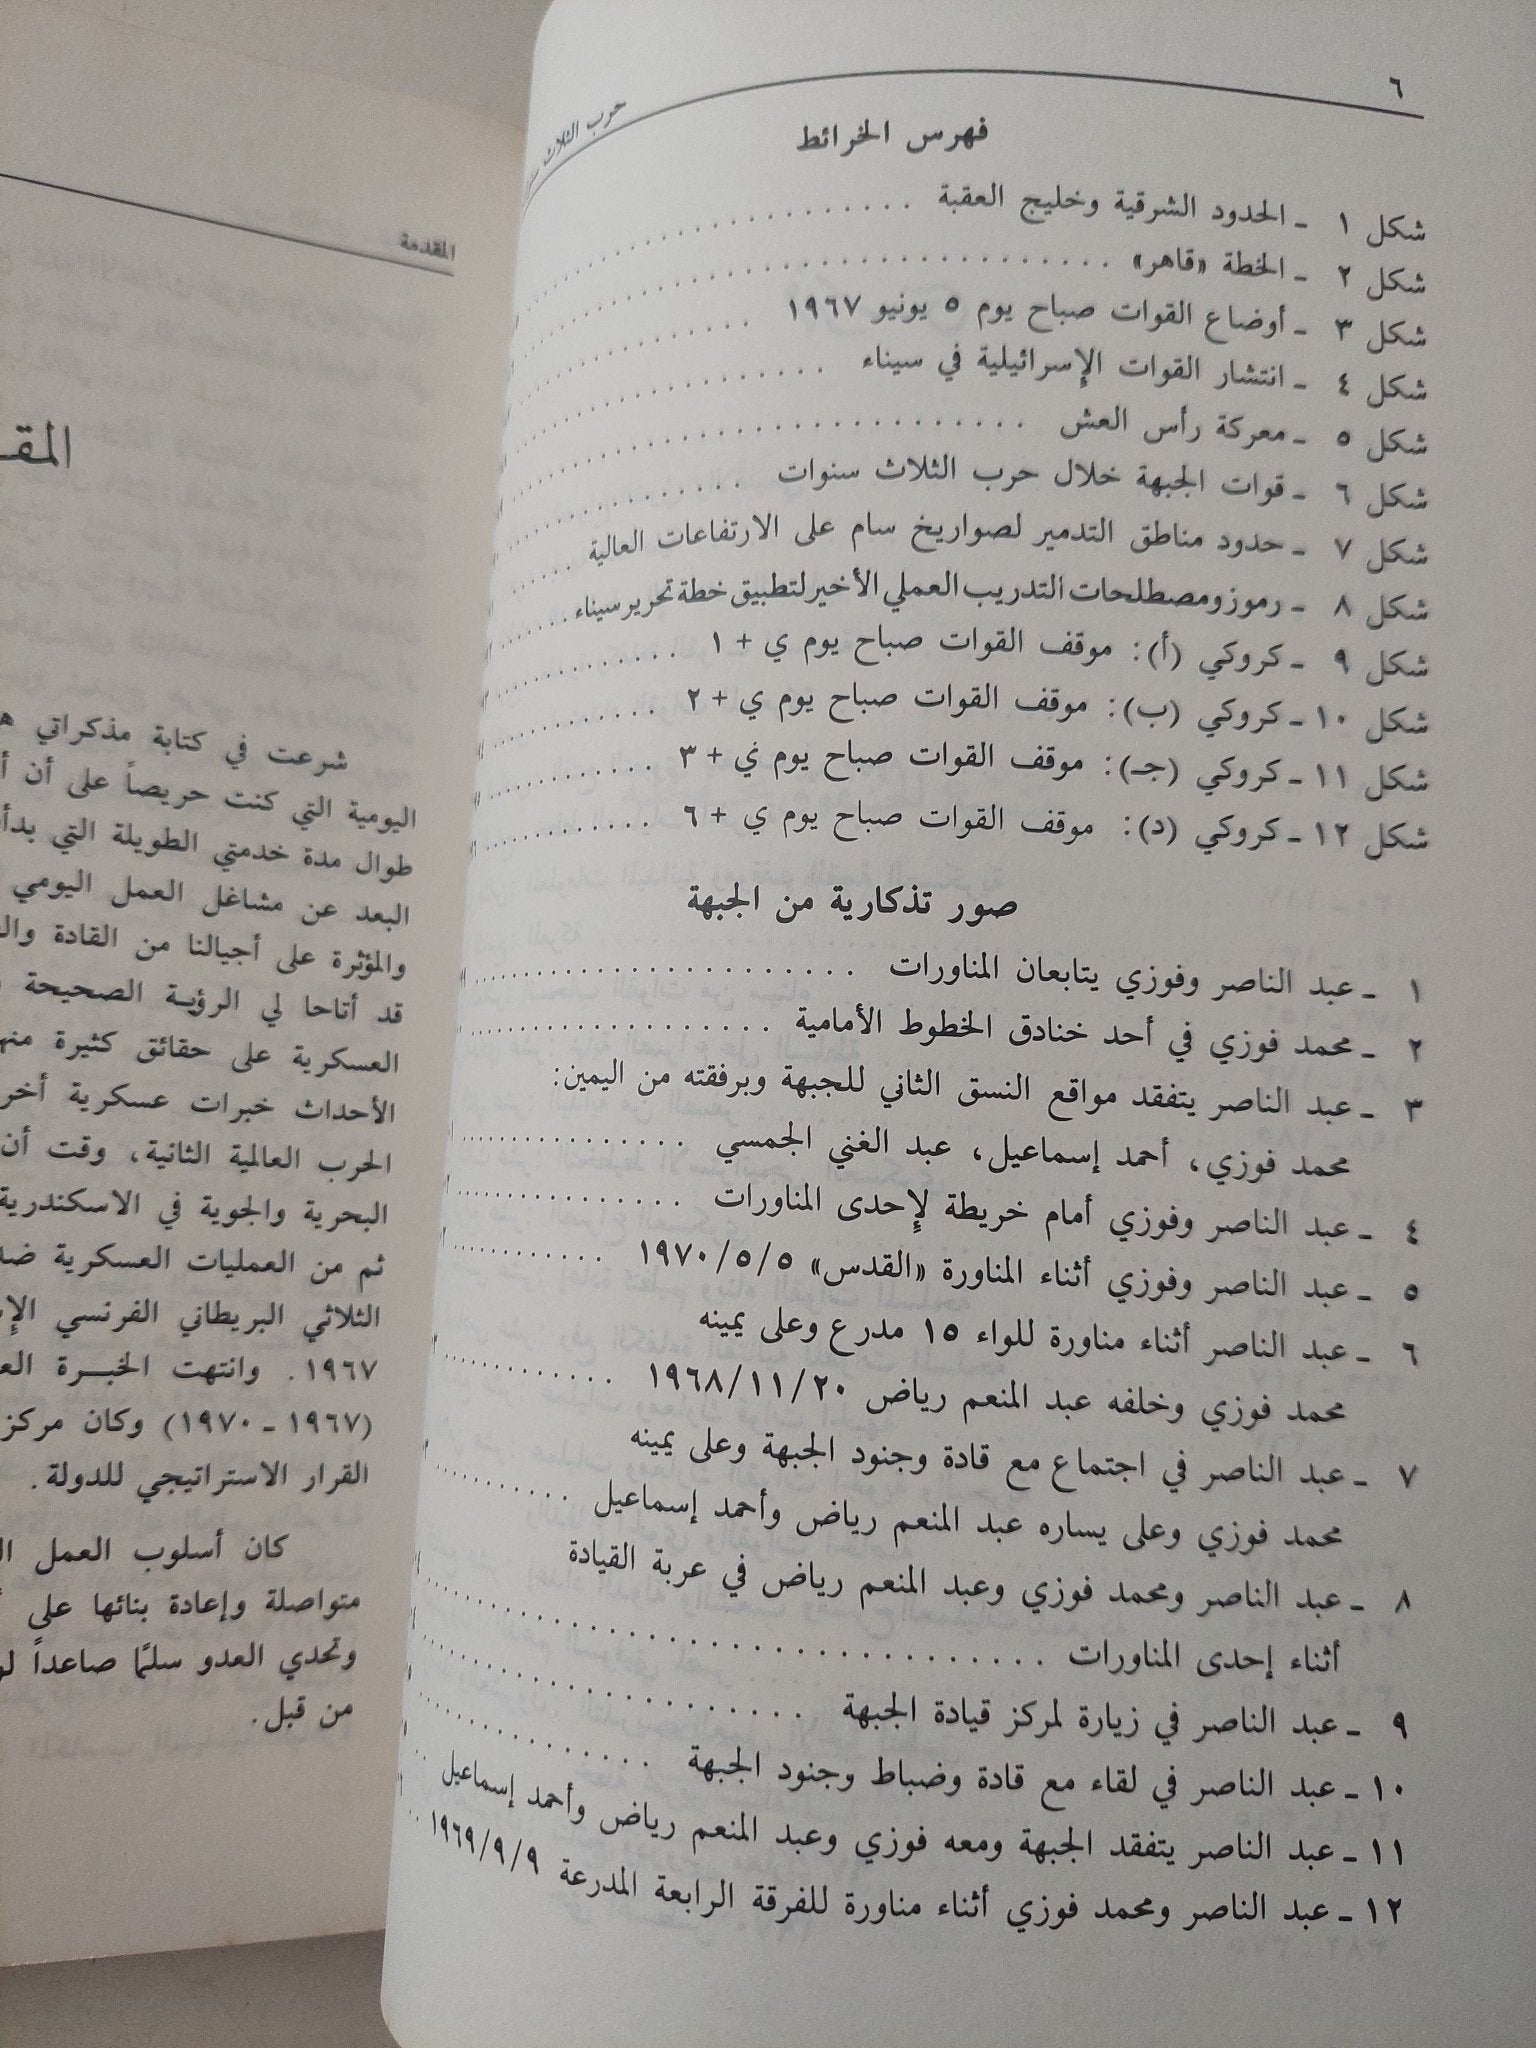 ٦
حرب الثلاث
فهرس الخرائط
شكل ١ ـ الحدود الشرقية وخليج العقبة
شكل ٢ ـ الخطة «قاهر»
شكل ٣ ـ أوضاع القوات صباح يوم ٥ يونيو ١٩٦٧
شكل ٤ ـ انتشار القوات الإسرائيلية في سيناء
شكل ٥ ـ معركة رأس العش
شكل ٦ ـ قوات الجبهة خلال حرب الثلاث سنوات
شكل ٧ ـ حدود مناطق التدمير لصواريخ سام على الارتفاعات العالية
شكل ٨ ـ رموز ومصطلحات التدريب العملي الأخير لتطبيق خطة تحرير سيناء
شكل ٩ ـ كروكي (أ): موقف القوات صباح يوم ي + ١
شكل ١٠ ـ كروكي (ب): موقف القوات صباح يوم ي + ٢
شكل ١١ ـ كروكي (جـ): موقف القوات صباح يوم ي + ٣
شكل ١٢ ـ كروكي (د): موقف القوات صباح يوم ي + ٦
صور تذكارية من الجبهة
١ ـ عبد الناصر وفوزي يتابعان المناورات
٢ ـ محمد فوزي في أحد خنادق الخطوط الأمامية
٣ ـ عبد الناصر يتفقد مواقع النسق الثاني للجبهة وبرفقته من اليمين:
محمد فوزي، أحمد إسماعيل، عبد الغني الجمسي
٤ ـ عبد الناصر وفوزي أمام خريطة لإحدى المناورات
٥ ـ عبد الناصر وفوزي أثناء المناورة «القدس» ١٩٧٠/٥/٥
٦ ـ عبد الناصر أثناء مناورة للواء ١٥ مدرع وعلى يمينه
محمد فوزي وخلفه عبد المنعم رياض ١٩٦٨/١١/٢٠
٧ ـ عبد الناصر في اجتماع مع قادة وجنود الجبهة وعلى يمينه
محمد فوزي وعلى يساره عبد المنعم رياض وأحمد إسماعيل
٨ ـ عبد الناصر ومحمد فوزي وعبد المنعم رياض في عربة القيادة
أثناء إحدى المناورات
٩ ـ عبد الناصر في زيارة لمركز قيادة الجبهة
١٠ ـ عبد الناصر في لقاء مع قادة وضباط وجنود الجبهة
١١ ـ عبد الناصر يتفقد الجبهة ومعه فوزي وعبد المنعم رياض وأحمد إسماعيل
١٢ ـ عبد الناصر ومحمد فوزي أثناء مناورة للفرقة الرابعة المدرعة ١٩٦٩/٩/٩
المقدمة
شرعت في كتابة مذكراتي
اليومية التي كنت حريصاً على أن
طوال مدة خدمتي الطويلة التي
البعد عن مشاغل العمل اليومي
والمؤثرة على أجيالنا من القادة
قد أتاحا لي الرؤية الصحيحة
العسكرية على حقائق كثيرة
الأحداث خبرات عسكرية
الحرب العالمية الثانية، وقت أن
البحرية والجوية في الاسكندرية
ثم من العمليات العسكرية
الثلاثي البريطاني الفرنسي
١٩٦٧. وانتهت الخبرة
(١٩٦٧ ـ ١٩٧٠) وكان
القرار الاستراتيجي للدولة.
كان أسلوب العمل
متواصلة وإعادة بنائها على
وتحدي العدو سلمًا صاعداً
من قبل.